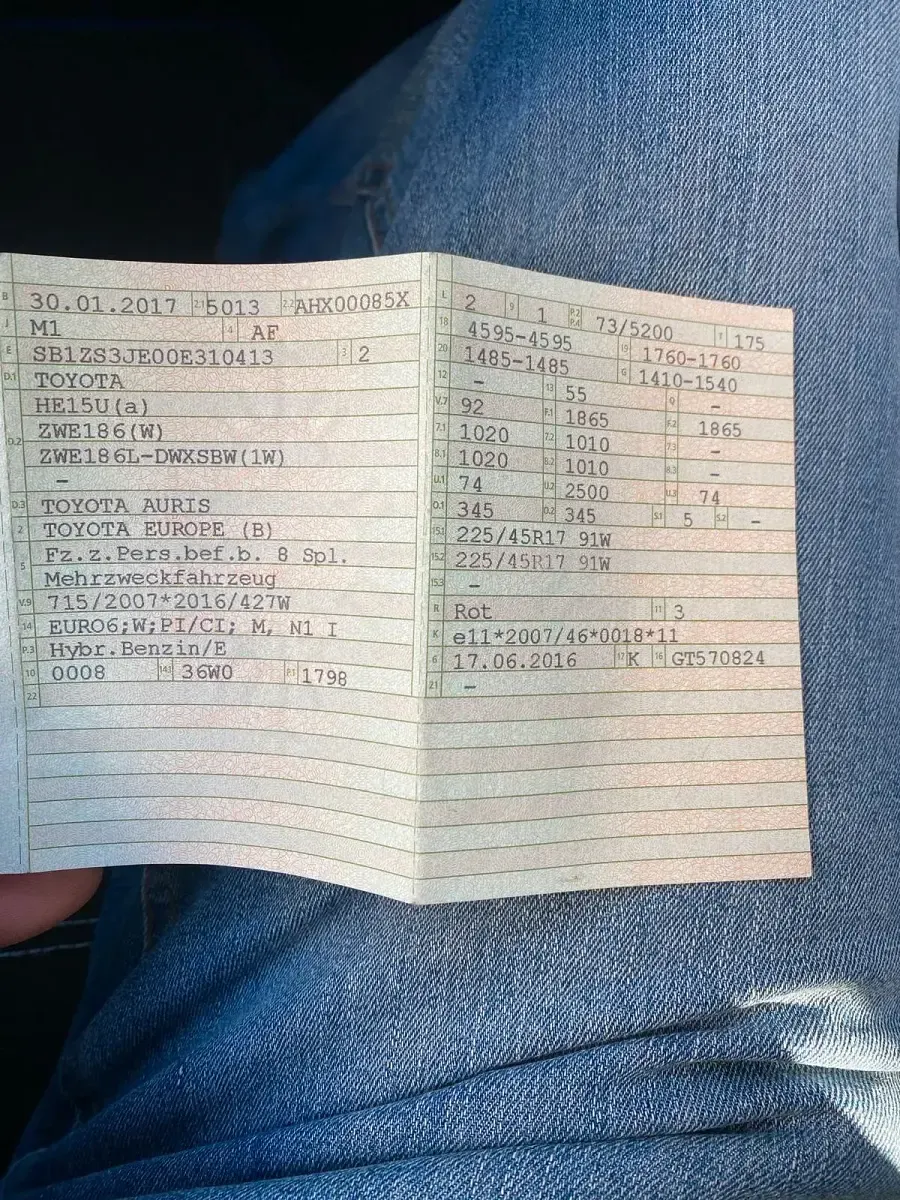 B 30.01.2017 2.1 5013 2.2 AHX00085X
J M1 4 AF
E SB1ZS3JE00E310413 3 2
D.1 TOYOTA
HE15U(a)
D.2 ZWE186(W)
ZWE186L-DWXSBW(1W)
–
D.3 TOYOTA AURIS
2 TOYOTA EUROPE (B)
5 Fz.z.Pers.bef.b. 8 Spl.
Mehrzweckfahrzeug
V.9 715/2007*2016/427W
14 EURO6;W;PI/CI; M, N1 I
P.3 Hybr.Benzin/E
10 0008 14.1 36W0 P.1 1798
22
L 2 9 1 P.2 P.4 73/5200 T 175
18 4595-4595 19 1760-1760
20 1485-1485 G 1410-1540
12 – 13 55 Q –
V.7 92 F.1 1865 F.2 1865
7.1 1020 7.2 1010 7.3 –
8.1 1020 8.2 1010 8.3 –
U.1 74 U.2 2500 U.3 74
O.1 345 O.2 345 S.1 5 S.2 –
15.1 225/45R17 91W
15.2 225/45R17 91W
15.3 –
R Rot 11 3
K e11*2007/46*0018*11
6 17.06.2016 17 K 16 GT570824
21 –